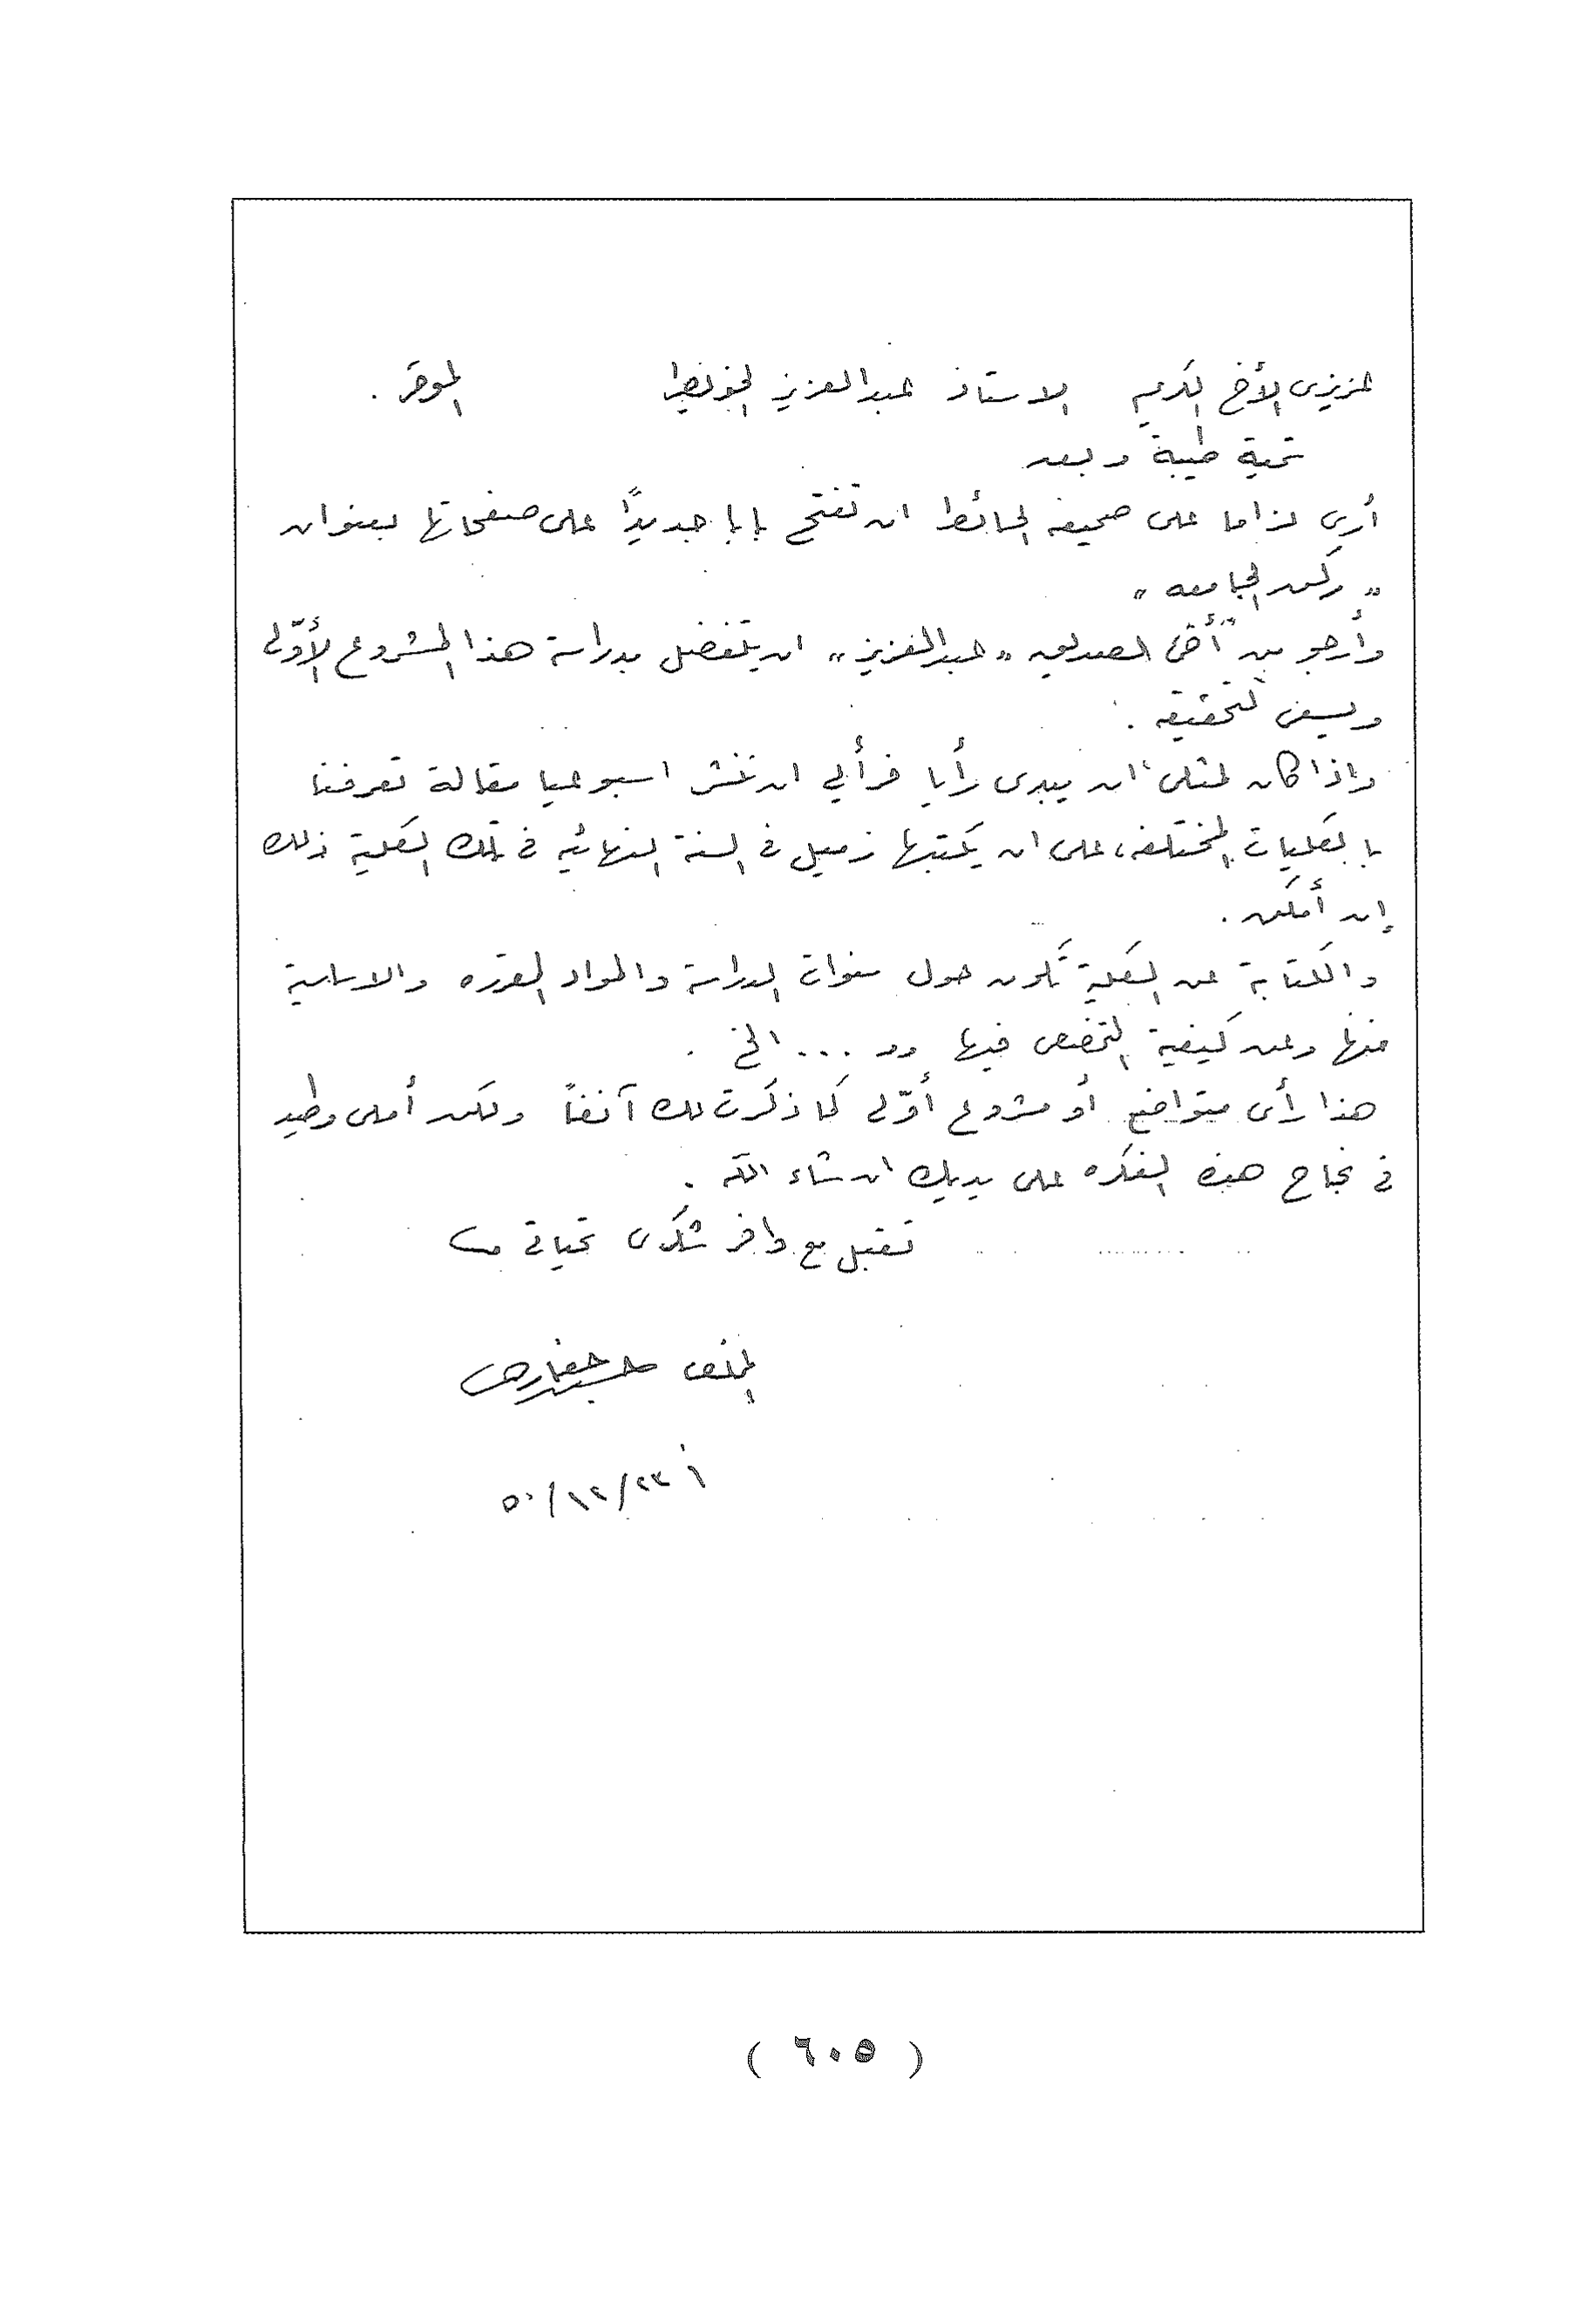 عزيزى الأخ الكريم الاستاذ عبدالعزيز الخويطر الموقر .
تحية طيبة وبعد
أرى لزاما على صحيفه الحائط ان تفتح بابا جديدًا على صفحاتها بعنوان
" ركن الجامعه "
وأرجو من أخى الصديق " عبدالعزيز " ان يتفضل بدراسة هذا المشروع الأوّلى
ويسعى لتحقيقه .
واذا كان لمثلى ان يبدى رأيا فرأيي ان تنشر اسبوعيا مقالة تعرفنا
بالكليات المختلفه، على ان يكتبها زميل فى السنة النهائيه فى تلك الكلية ذلك
إن أمكن .
والكتابة عن الكلية تكون حول سنوات الدراسة والمواد المقرره والاساسية
منها وعن كيفية التخصص فيها و ... الخ .
هذا رأى متواضع أو مشروع أوّلى كما ذكرت لك آنفاً ولكن أملى وطيد
فى نجاح هذه الفكره على يديك ان شاء الله .
تقبل مع وافر شكرى تحياتى
المخلص
٥٠/١٢/٢٣
( ٦٠٥ )